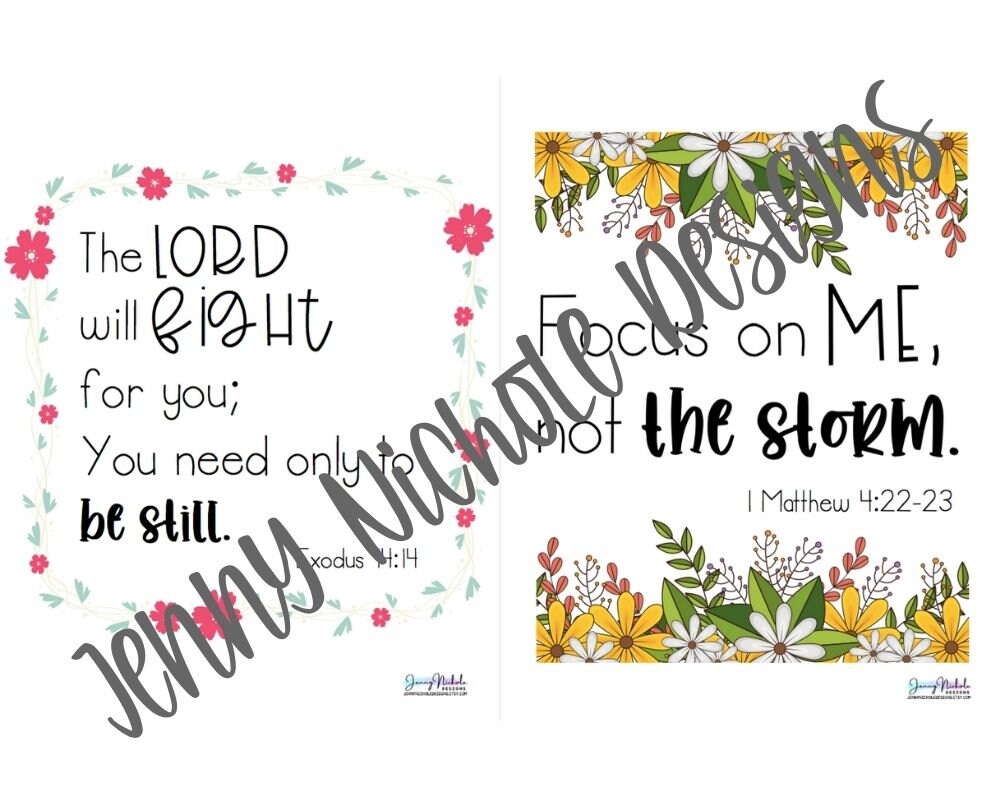 The LORD
will FIGHT
for you;
You need only to
be still.
Exodus 14:14
Jenny Nichole
DESIGNS
JENNYNICHOLEDESIGNS.ETSY.COM
Focus on ME,
not the storm.
1 Matthew 4:22-23
Jenny Nichole
DESIGNS
JENNYNICHOLEDESIGNS.ETSY.COM
Jenny Nichole Designs